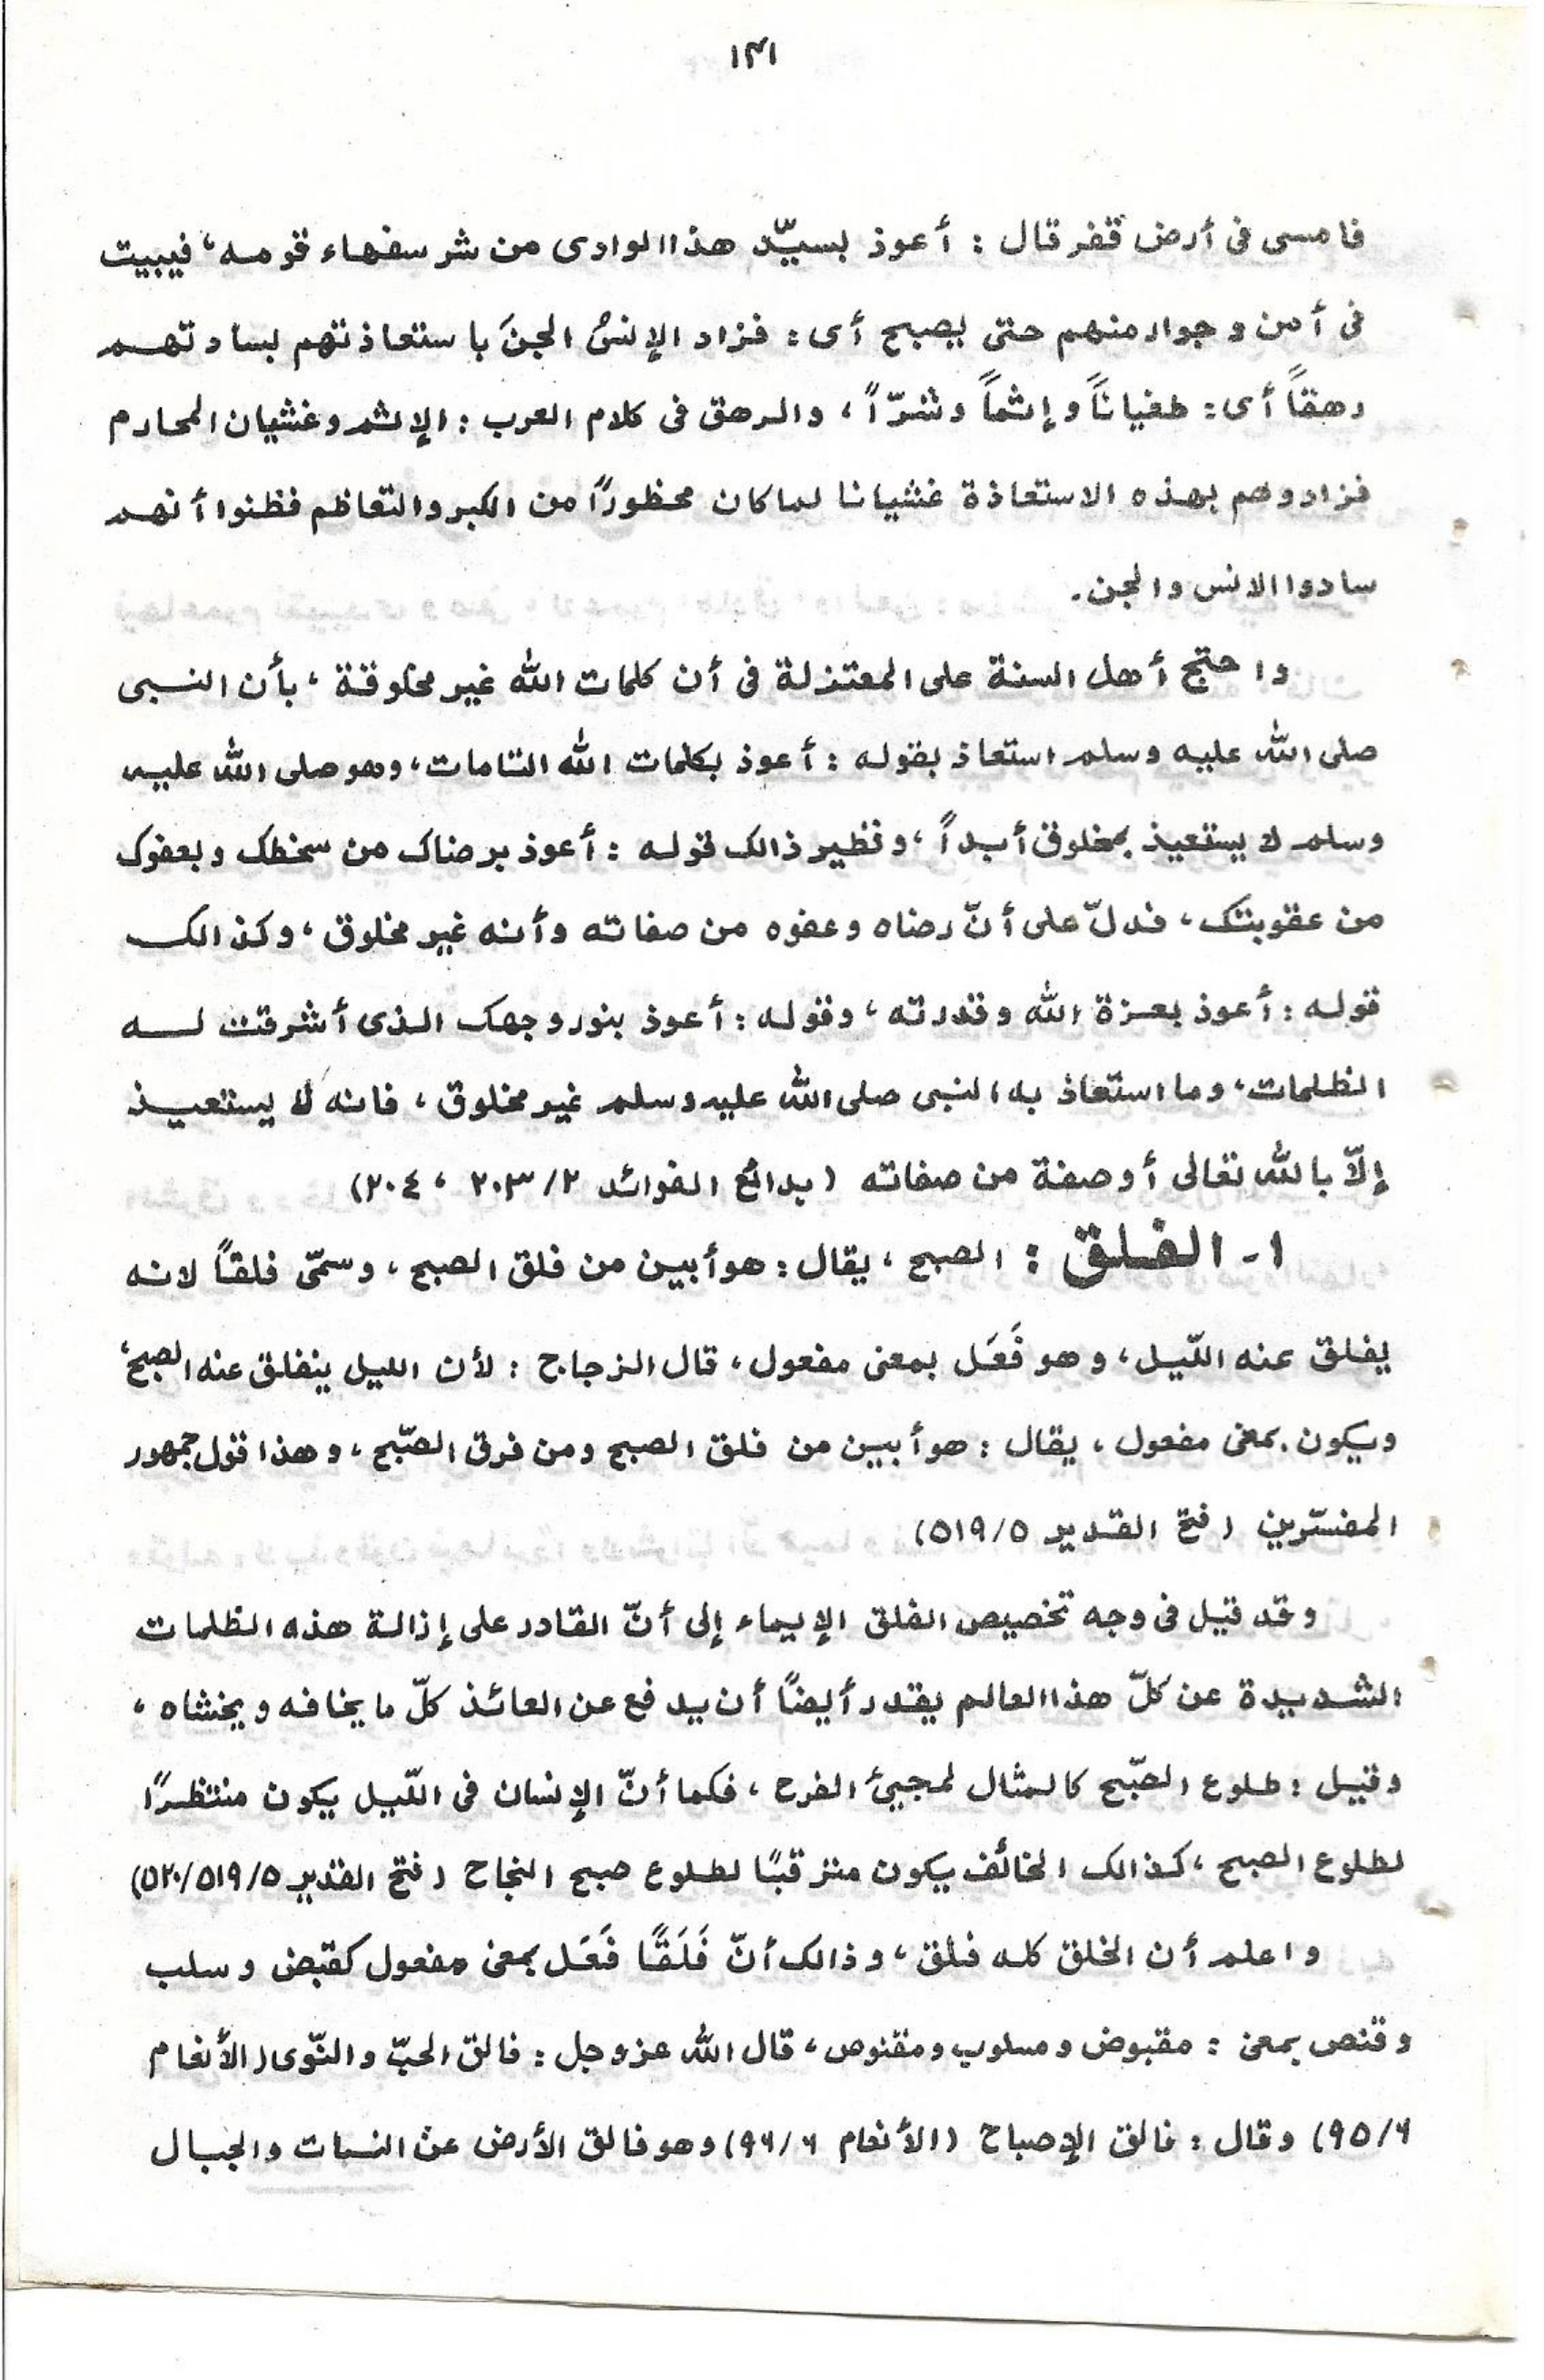 ۱۳۱
فامسى فى أرض قفر قال : أعوذ بسيّد هذا الوادى من شر سفهاء قومه، فيبيت
فى أمن وجوار منهم حتى يصبح أى : فزاد الإنسُ الجنَ باستعاذتهم بسادتهم
رهقاً أى : طغياناً وإثماً وشرّاً، والرهق فى كلام العرب : الإثم وغشيان المحارم
فزادوهم بهذه الاستعاذة غشيانا لما كان محظورًا من الكبر والتعاظم فظنوا أنهم
سادوا الانس والجن.
واحتج أهل السنة على المعتزلة فى أن كلمات الله غير مخلوقة، بأن النبى
صلى الله عليه وسلم استعاذ بقوله : أعوذ بكلمات الله التامات، وهو صلى الله عليه
وسلم لا يستعيذ بمخلوق أبداً، ونظير ذالك قوله : أعوذ برضاك من سخطك وبعفوك
من عقوبتك، فدلّ على أنّ رضاه وعفوه من صفاته وأنه غير مخلوق، وكذالك
قوله : أعوذ بعزة الله وقدرته، وقوله : أعوذ بنور وجهك الذى أشرقت له
الظلمات، وما استعاذ به النبى صلى الله عليه وسلم غير مخلوق، فانه لا يستعيذ
إلاّ بالله تعالى أو صفة من صفاته (بدائع الفوائد ۲/۲۰۳، ۲۰٤)
۱- الفلق : الصبح، يقال : هو أبين من فلق الصبح، وسمّى فلقاً لانه
يفلق عنه اللّيل، وهو فَعَل بمعنى مفعول، قال الزجاج : لأن الليل ينفلق عنه الصبح،
ويكون بمعنى مفعول، يقال : هو أبين من فلق الصبح ومن فرق الصّبح، وهذا قول جمهور
المفسّرين (فتح القدير ٥/٥۱۹)
وقد قيل فى وجه تخصيص الفلق الإيماء إلى أنّ القادر على إزالة هذه الظلمات
الشديدة عن كلّ هذا العالم يقدر أيضًا أن يدفع عن العائذ كلّ ما يخافه ويخشاه،
وقيل : طلوع الصّبح كالمثال لمجيئ الفرح، فكما أنّ الإنسان فى اللّيل يكون منتظرًا
لطلوع الصبح، كذالك الخائف يكون مترقبًا لطلوع صبح النجاح (فتح القدير ٥/٥۱۹/٥۲۰)
واعلم أن الخلق كله فلق، وذالك أنّ فَلَقًا فَعَل بمعنى مفعول كقبض وسلب
وقنص بمعنى : مقبوض ومسلوب ومقنوص، قال الله عزوجل : فالق الحبّ والنّوى (الأنعام
۶/۹٥) وقال : فالق الإصباح (الأنعام ۶/۹۶) وهو فالق الأرض عن النبات والجبال